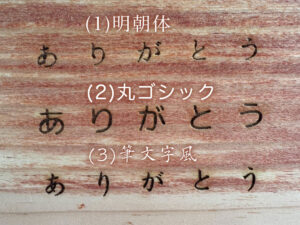 (1)明朝体
ありがとう
(2)丸ゴシック
ありがとう
(3)筆文字風
ありがとう